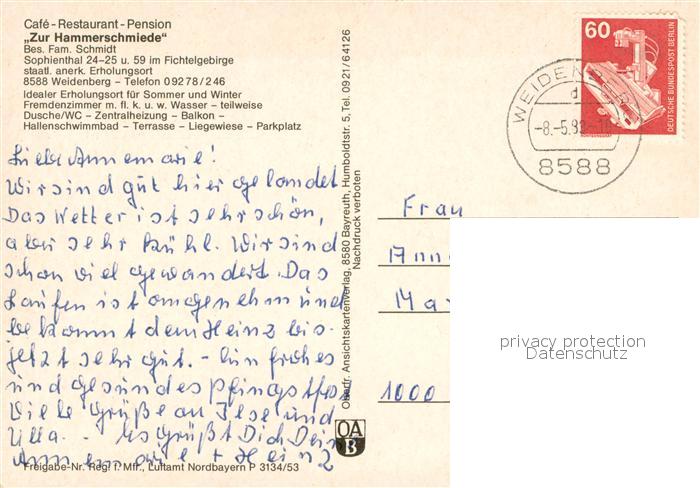 Café - Restaurant - Pension
„Zur Hammerschmiede"
Bes. Fam. Schmidt
Sophienthal 24-25 u. 59 im Fichtelgebirge
staatl. anerk. Erholungsort
8588 Weidenberg - Telefon 09278/246
Idealer Erholungsort für Sommer und Winter
Fremdenzimmer m. fl. k. u. w. Wasser - teilweise
Dusche/WC - Zentralheizung - Balkon -
Hallenschwimmbad - Terrasse - Liegewiese - Parkplatz
Liebe Annemarie!
Wir sind gut hier gelandet
Das Wetter ist sehr schön,
aber sehr kühl. Wir sind
schon viel gewandert. Das
Laufen ist angenehm und
bekommt dem Heinz bis
jetzt sehr gut. - Ein frohes
und gesundes Pfingstfest
Viele Grüße an Ilse und
Ulla. - Es grüßt Dich Dein
Annemarie + Heinz
Freigabe-Nr. Reg. f. Mfr., Luftamt Nordbayern P 3134/53
Oberfr. Ansichtskartenverlag, 8580 Bayreuth, Humboldtstr. 5, Tel. 0921/64126
Nachdruck verboten
OA
B
60
DEUTSCHE BUNDESPOST BERLIN
WEIDENBERG
d
-8.-5.82
8588
Frau
Anne
Mar
1000
privacy protection
Datenschutz